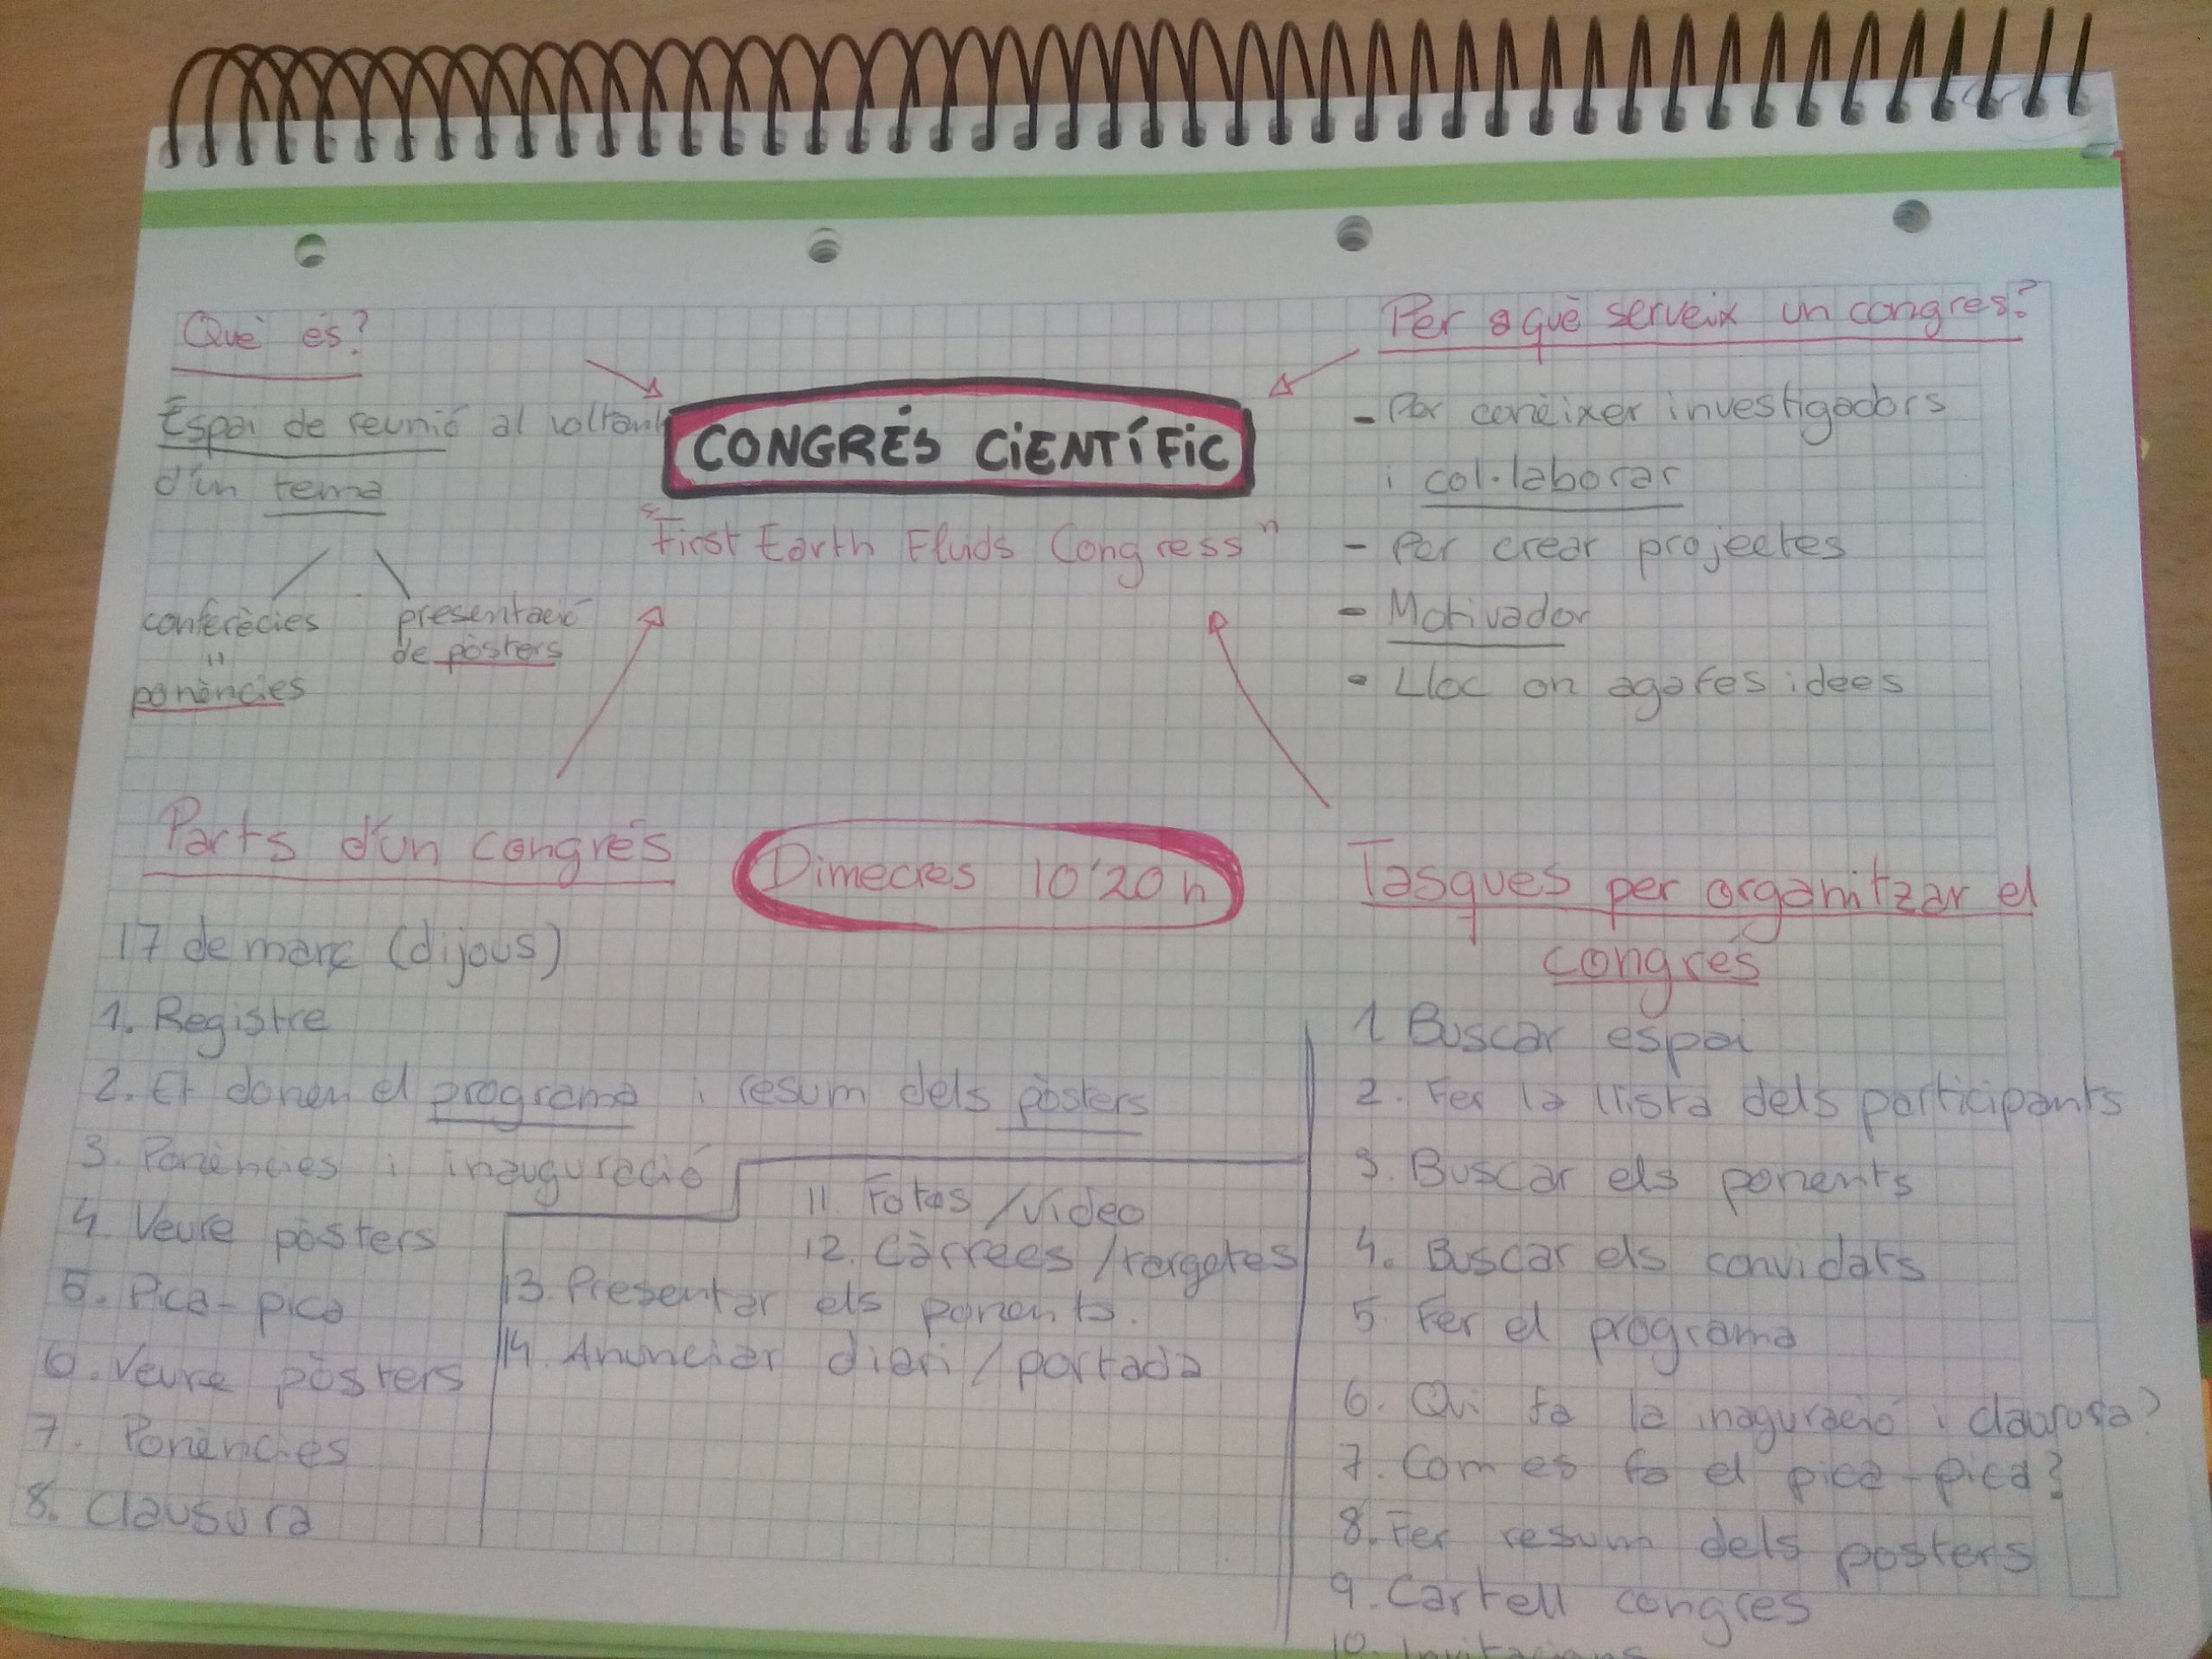 Què és?
Espai de reunió al voltant
d'un tema
conferècies
"
ponències
presentació
de pòsters
CONGRÉS CIENTÍFIC
"First Earth Fluids Congress"
Per a què serveix un congres?
- Per conèixer investigadors
i col·laborar
- Per crear projectes
- Motivador
- Lloc on agafes idees
Parts d'un congrés
17 de març (dijous)
1. Registre
2. Et donen el programa i resum dels pòsters
3. Ponències i inauguració
4. Veure pòsters
5. Pica-pica
6. Veure pòsters
7. Ponències
8. Clausura
Dimecres 10'20 h
Tasques per organitzar el
congrés
1 Buscar espai
2. Fer la llista dels participants
3. Buscar els ponents
4. Buscar els convidats
5. Fer el programa
6. Qui fa la inaguració i clausura?
7. Com es fa el pica-pica?
8. Fer resum dels posters
9. Cartell congres
10. Invitacions
11. Fotos /vídeo
12. Càrrecs /targetes
13. Presentar els ponents.
14. Anunciar diari / portada